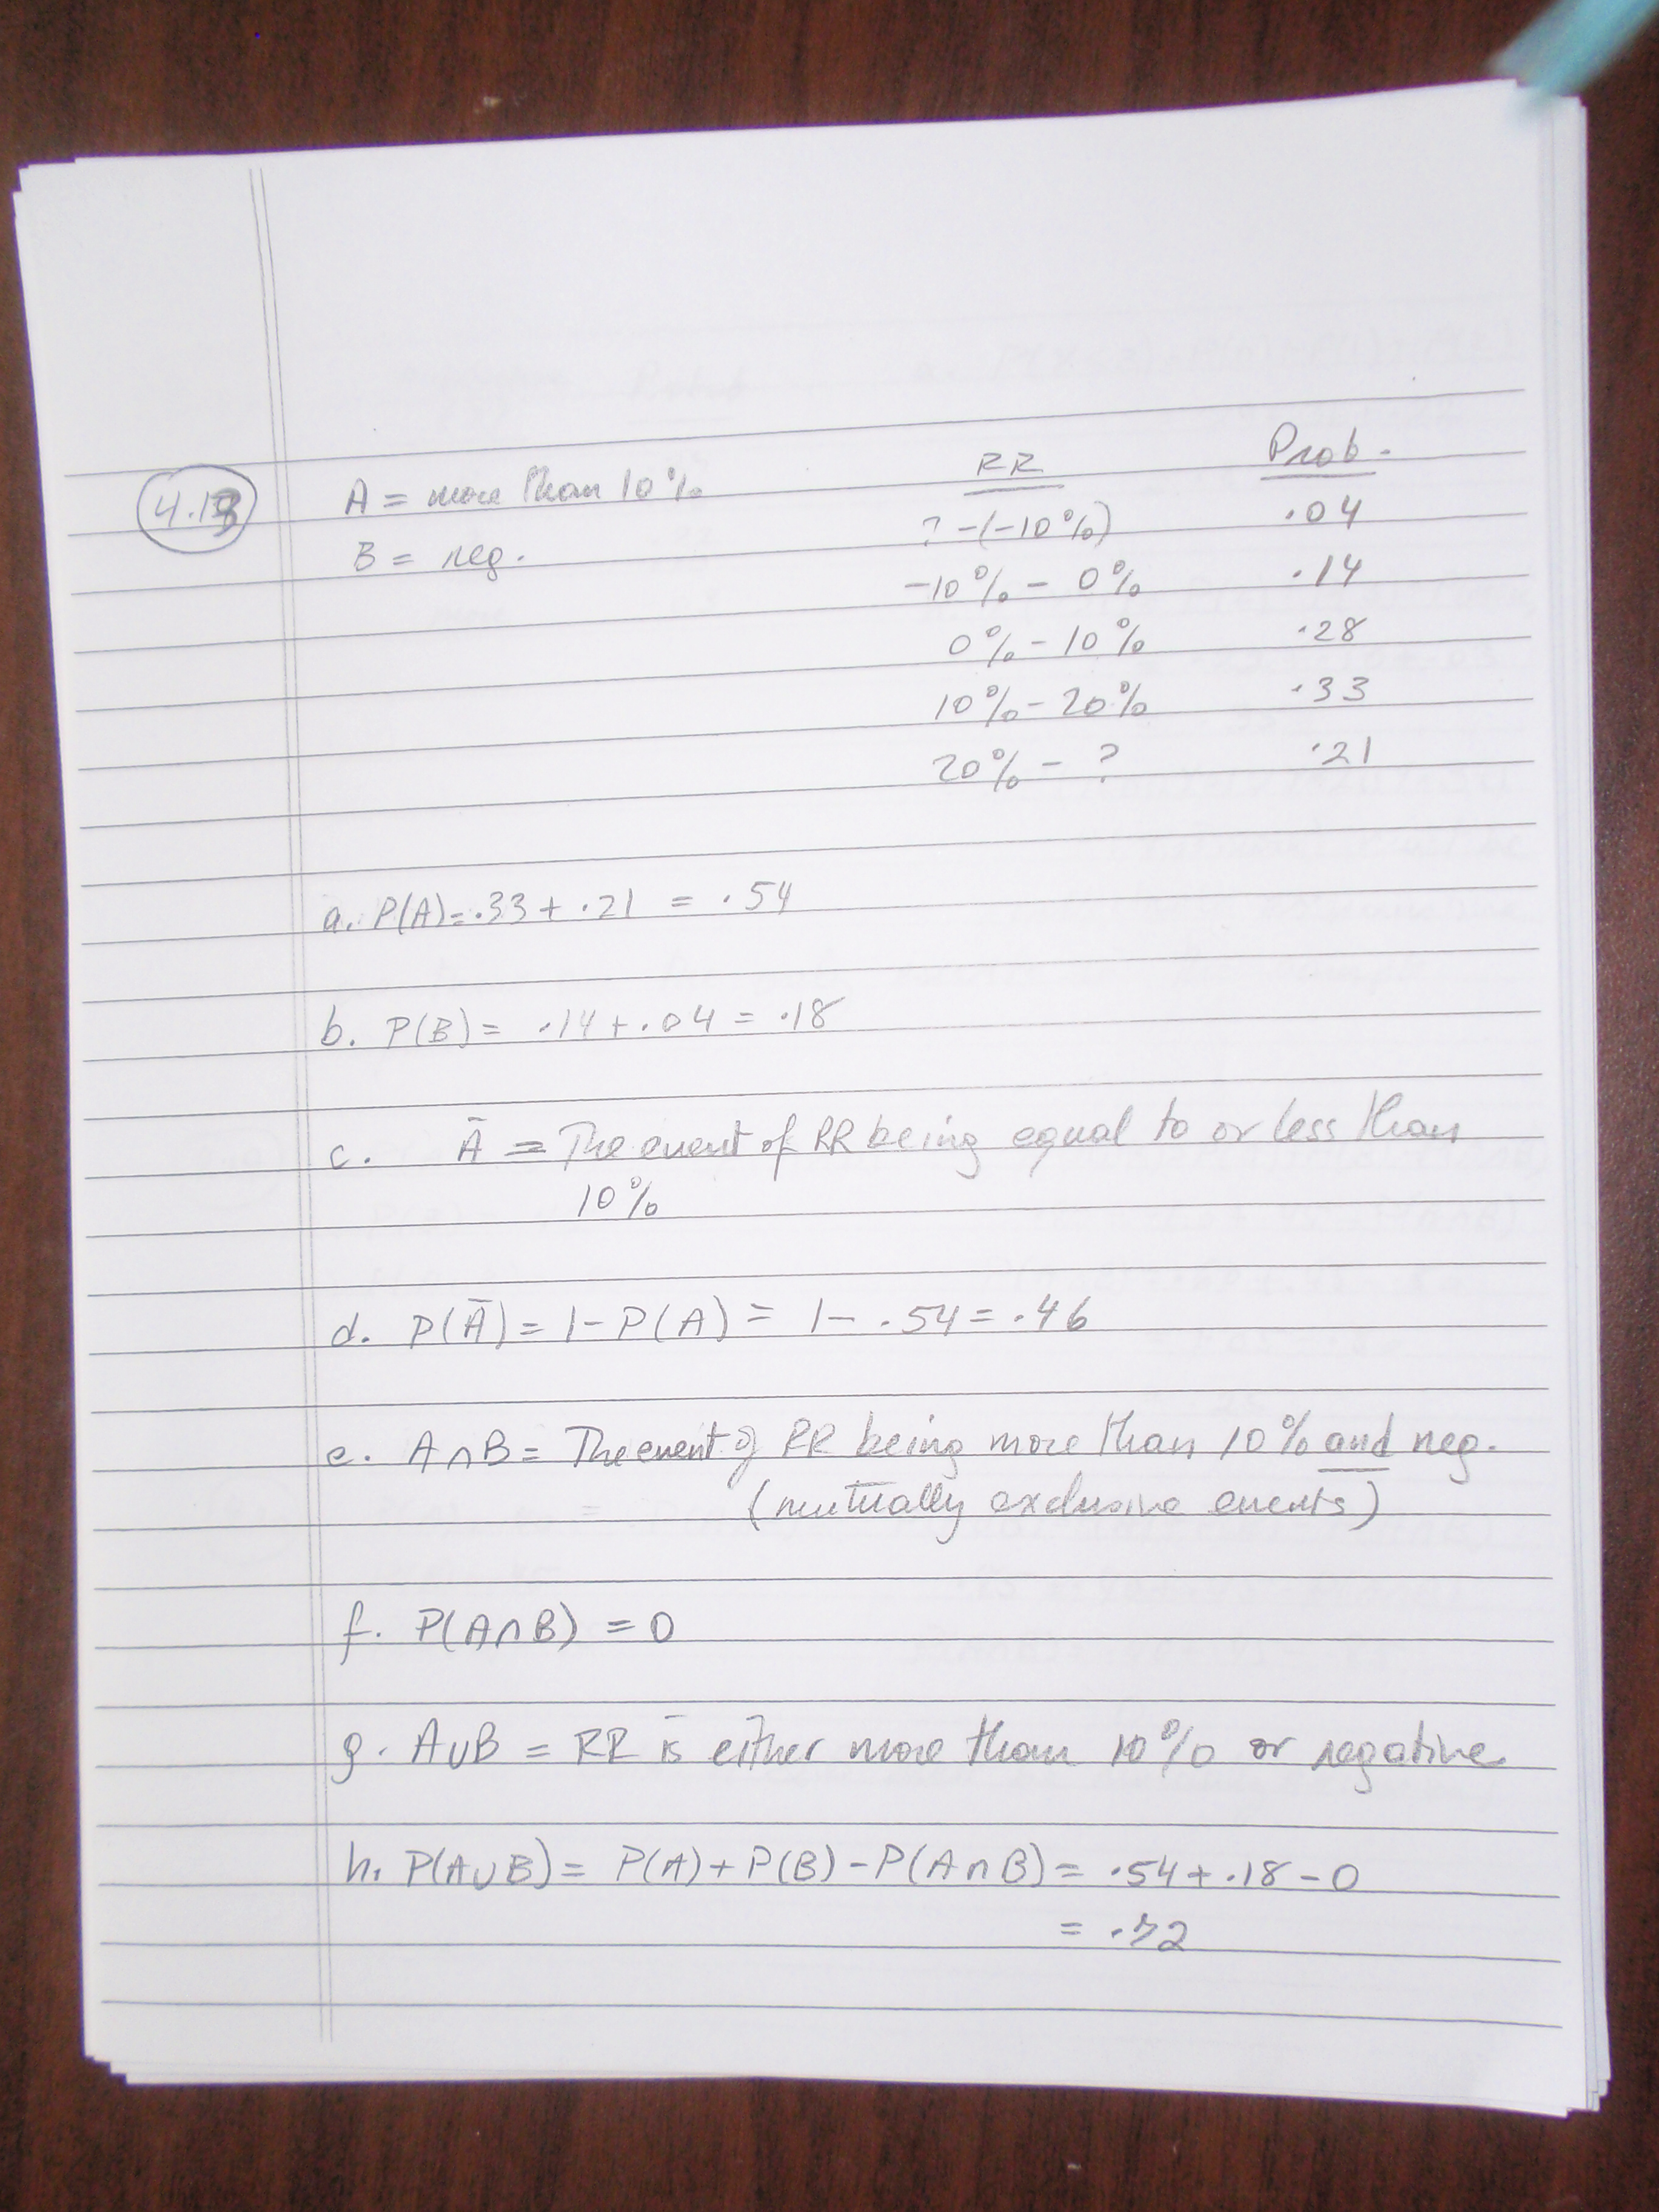 A = more than 10% RR Prob.
B = neg. ? - (-10%) .04
-10% - 0% .14
0% - 10% .28
10% - 20% .33
20% - ? .21
a. P(A) = .33 + .21 = .54
b. P(B) = .14 + .04 = .18
c. Ā = The event of RR being equal to or less than
10%
d. P(Ā) = 1 - P(A) = 1 - .54 = .46
e. A∩B = The event of RR being more than 10% and neg.
(mutually exclusive events)
f. P(A∩B) = 0
g. A∪B = RR is either more than 10% or negative.
h. P(A∪B) = P(A) + P(B) - P(A∩B) = .54 + .18 - 0
= .72